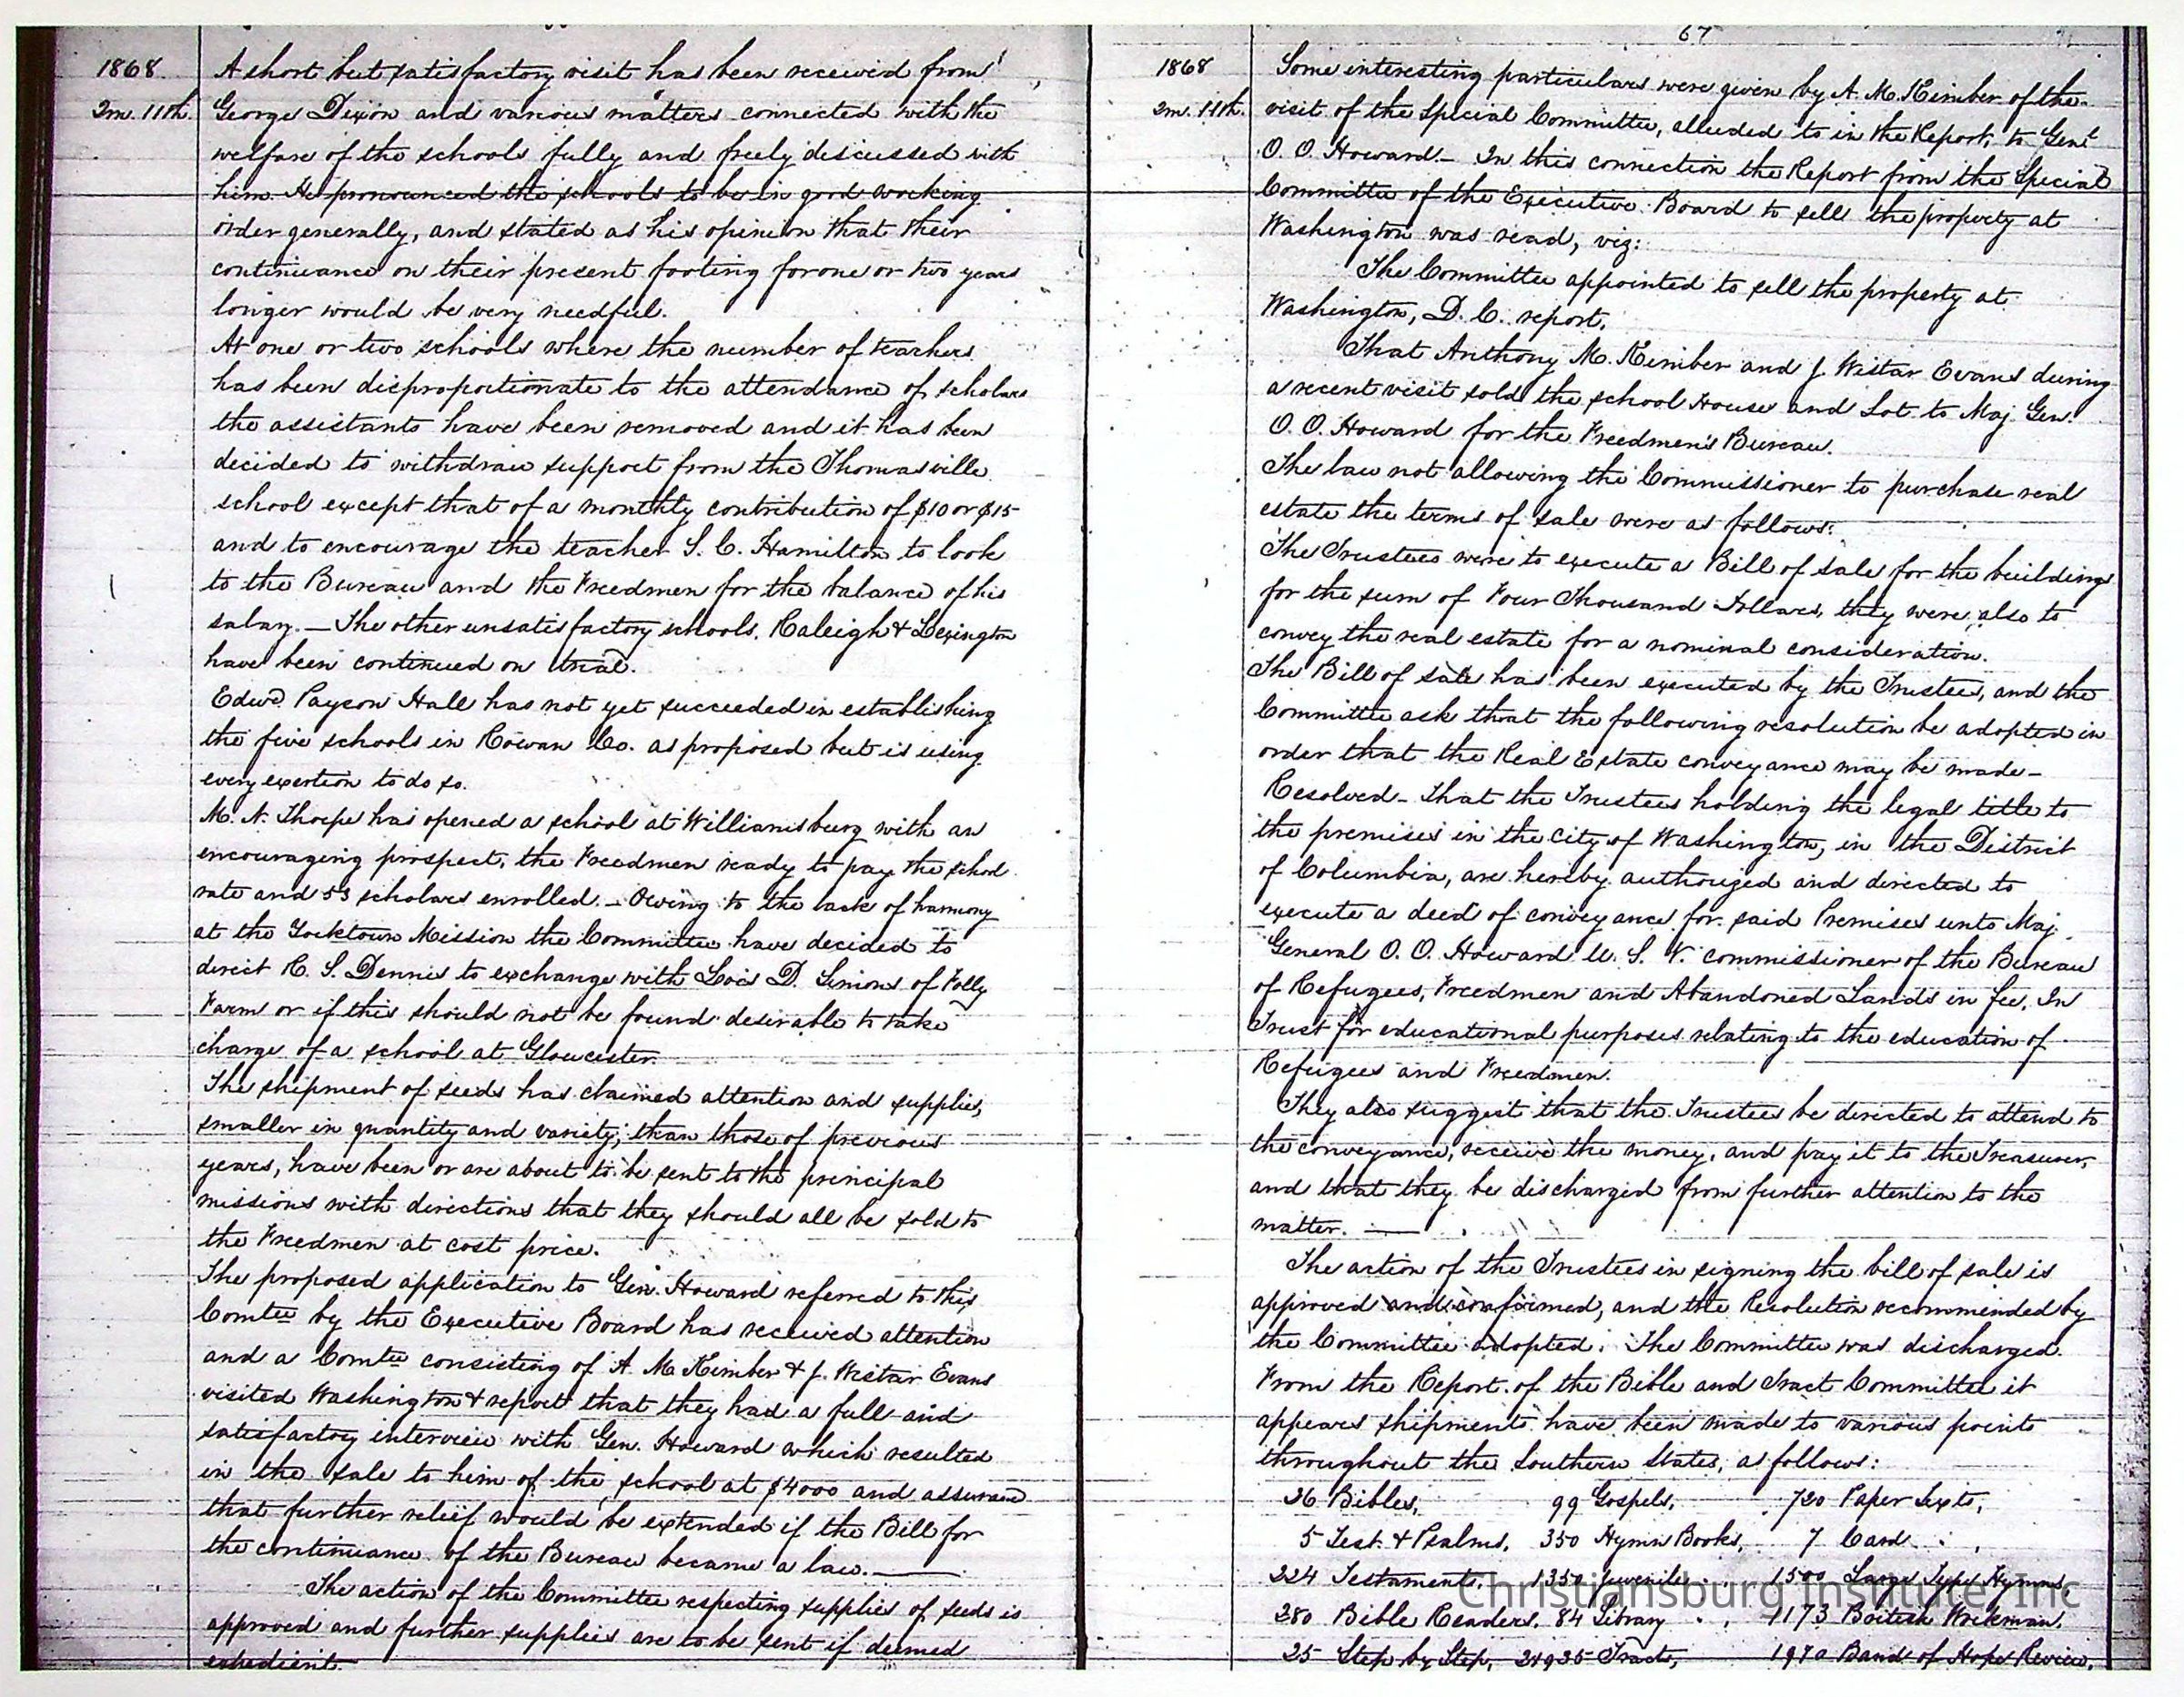 1868.
2m. 11th.
A short but satisfactory visit has been received from
George Dixon and various matters connected with the
welfare of the schools fully and freely discussed with
him. He pronounced the schools to be in good working
order generally, and stated as his opinion that their
continuance on their present footing for one or two years
longer would be very needful.
At one or two schools where the number of teachers
has been disproportionate to the attendance of scholars
the assistants have been removed and it has been
decided to withdraw support from the Thomasville
school except that of a monthly contribution of $10 or $15
and to encourage the teacher S. C. Hamilton to look
to the Bureau and the Freedmen for the balance of his
salary. — The other unsatisfactory schools, Raleigh & Lexington
have been continued on trial.
Edwd. Payson Hall has not yet succeeded in establishing
the five schools in Rowan Co. as proposed but is using
every exertion to do so.
M. N. Thorpe has opened a school at Williamsburg with an
encouraging prospect, the Freedmen ready to pay the school
rate and 53 scholars enrolled. — Owing to the lack of harmony
at the Yorktown Mission the Committee have decided to
direct R. S. Dennis to exchange with Lois D. Simons of Folly
Farm or if this should not be found desirable to take
charge of a school at Gloucester.
The shipment of seeds has claimed attention and supplies,
smaller in quantity and variety, than those of previous
years, have been or are about to be sent to the principal
missions with directions that they should all be sold to
the Freedmen at cost price.
The proposed application to Gen. Howard referred to this
Comtee by the Executive Board has received attention
and a Comtee consisting of A. M. Kimber & J. Wistar Evans
visited Washington & report that they had a full and
satisfactory interview with Gen. Howard which resulted
in the sale to him of the school at $4000 and assurance
that further relief would be extended if the Bill for
the continuance of the Bureau became a law. —
The action of the Committee respecting supplies of seeds is
approved and further supplies are to be sent if deemed
expedient.
67
1868
2m. 11th.
Some interesting particulars were given by A. M. Kimber of the
visit of the Special Committee, alluded to in the Report, to Genl.
O. O. Howard. — In this connection the Report from the Special
Committee of the Executive Board to sell the property at
Washington was read, viz:
The Committee appointed to sell the property at
Washington, D. C. report,
That Anthony M. Kimber and J. Wistar Evans during
a recent visit sold the school House and Lot to Maj. Gen.
O. O. Howard for the Freedmen's Bureau.
The law not allowing the Commissioner to purchase real
estate the terms of sale were as follows:
The Trustees were to execute a Bill of sale for the buildings
for the sum of Four Thousand Dollars, they were also to
convey the real estate for a nominal consideration.
The Bill of sale has been executed by the Trustees, and the
Committee ask that the following resolution be adopted in
order that the Real Estate conveyance may be made —
Resolved — That the Trustees holding the legal title to
the premises in the City of Washington, in the District
of Columbia, are hereby authorized and directed to
execute a deed of conveyance for said Premises unto Maj.
General O. O. Howard U. S. V. commissioner of the Bureau
of Refugees, Freedmen and Abandoned Lands in fee, In
Trust for educational purposes relating to the education of
Refugees and Freedmen.
They also suggest that the Trustees be directed to attend to
the conveyance, receive the money, and pay it to the Treasurer,
and that they be discharged from further attention to the
matter. —
The action of the Trustees in signing the bill of sale is
approved and confirmed, and the Resolution recommended by
the Committee adopted. The Committee was discharged.
From the Report of the Bible and Tract Committee it
appears shipments have been made to various points
throughout the Southern States, as follows:
26 Bibles, 99 Gospels, 720 Paper Texts,
5 Test. & Psalms, 350 Hymn Books, 7 Card "
224 Testaments, 1350 Juvenile " 1500 Large Type Hymns
280 Bible Readers, 84 Library " 1173 British Workman,
25 Step by Step, 24935 Tracts, 1970 Band of Hope Review,
Christiansburg Institute, Inc